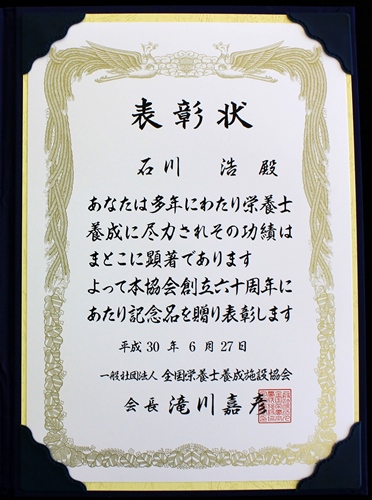 表彰状
石川 浩 殿
あなたは多年にわたり栄養士
養成に尽力されその功績は
まとこに顕著であります
よって本協会創立六十周年に
あたり記念品を贈り表彰します
平成30年6月27日
一般社団法人 全国栄養士養成施設協会
会長 滝川嘉彦